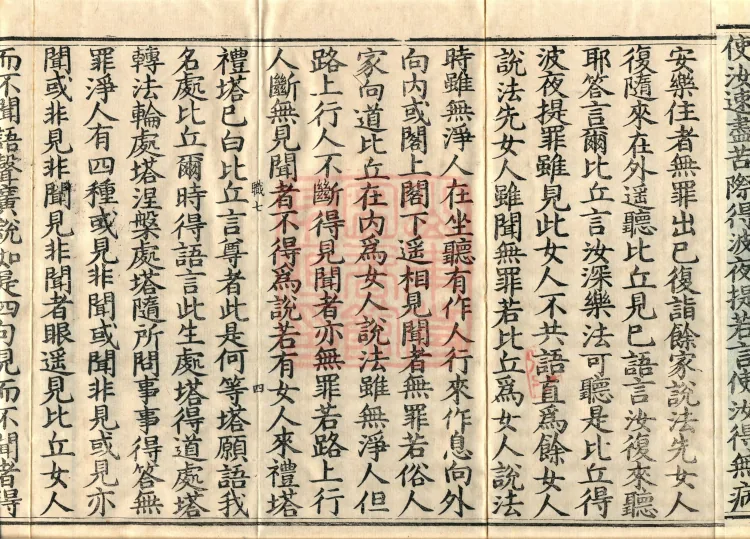 使汝速盡苦際得波夜提若言使汝得無病
安樂住者無罪出已復詣餘家說法先女人
復隨來在外遥聽比丘見已語言汝復來聽
耶答言爾比丘言汝深樂法可聽是比丘得
波夜提罪雖見此女人不共語直爲餘女人
說法先女人雖聞無罪若比丘爲女人說法
時雖無淨人在坐聽有作人行來作息向外
向内或閣上閣下遥相見聞者無罪若俗人
家向道比丘在内爲女人說法雖無淨人但
路上行人不斷得見聞者亦無罪若路上行
人斷無見聞者不得爲說若有女人來禮塔
職七 四
禮塔已白比丘言尊者此是何等塔願語我
名處比丘爾時得語言此生處塔得道處塔
轉法輪處塔涅槃處塔隨所問事事得答無
罪淨人有四種或見非聞或聞非見或見亦
聞或非見非聞見非聞者眼遥見比丘女人
而不聞語聲廣說如是四句見而不聞者得